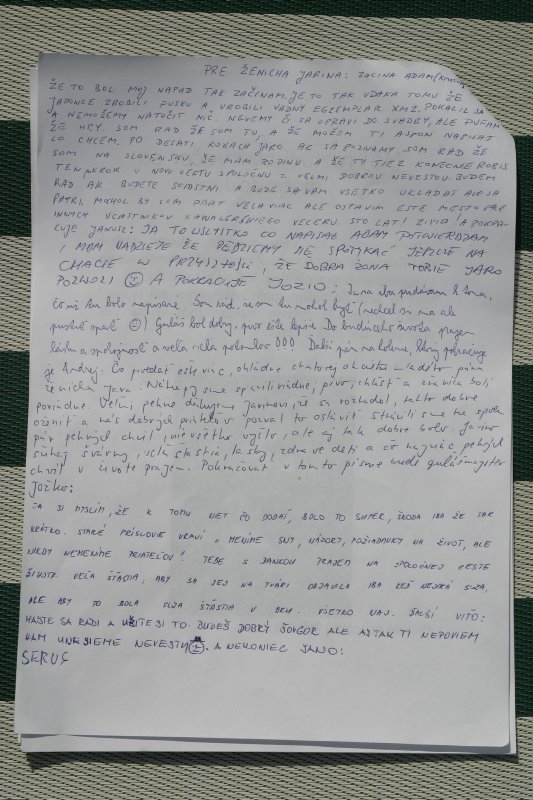 PRE ŽENÍCHA JARINA: ZAČÍNA ADAM
ŽE TO BOL MOJ NÁPAD TAK ZAČÍNAM. JE TO TAK VĎAKA TOMU ŽE
JAPONCE ZROBILI FUŠKU A UROBILI VADNÝ EGZEMPLAR XM2. POKAZIL SA
A NEMOŽEMY NATOČIT NIČ. NEVEMY ČI SA OPRAVI DO SVADBY, ALE DUFAM
ŽE HEY. SOM RAD ŽE SOM TU, A ŽE MOŽEM TI ASPON NAPISAT
ČO CHCEM. PO DESATI ROKACH JARO AK SA POZNAMY SOM RAD ŽE
SOM NA SLOVENSKU, ŽE MAM RODINU A ŽE TY TIEŽ KONEČNE ROBIS
TEN KROK V NOVU CESTU SPOLOČNU Z VELMI DOBROU NEVESTOU. BUDEM
RAD AK BUDETE SCASTNI A BUDE SA VAM VSETKO UKLADAT AKO SA
PATRI. MOHOL BY SOM PISAT VELA VIAC ALE OSTAVIM ESTE MIESTO PRE
INNYCH UČASTNIKOV KAWALERSKIEGO VEČERU. STO LAT! ŽIVIO! A POKRA-
ČUJE JANUSZ: JA TO WSZYSTKO CO NAPISAŁ ADAM POTWIERDZAM
I MAM NADZIEJE ŻE BĘDZIEMY SIĘ SPOTYKAĆ JESZCZE NA
CHACIE W PRZYSZŁOŚCI, ŻE DOBRA ŻONA TOBIE JARO
POZWOLI ☺ A POKRAČUJE JOZIO: Ja sa iba pridávam k tomu,
čo už tu bolo napísané. Som rád, že som tu mohol byť (nechcel si ma ale
pustiť spať ☺) Guláš bol dobrý, pivo ešte lepšie. Do budúceho života prajem
lásku a spokojnosť a veľa potomkov Ďalší pán na kolene, ktorý pokračuje
je Andrej: Čo povedať ešte viac, ohľadne chatovej mladého pána
ženícha Jara. Nálepy sme spravili riadne, pivo, chlast a zranice boli
poriadne. Veľmi pekne ďakujeme Jarinovi, že sa rozhodol, takto dobre
oženiť a nás dobrých priateľov pozval to osláviť. Strávili sme tu spolu
pár pekných chvíľ, nie všetko vyšlo, ale aj tak dobre bolo. Jarino
šuhaj švárny, veľa šťastia, lásky, zdravé deti a čo najviac pekných
chvíľ v živote prajem. Pokračovať v tomto písme bude gulášmajster
Jožko:
JA SI MYSLÍM, ŽE K TOMU NIET ČO DODAŤ, BOLO TO SUPER, ŠKODA IBA ŽE TAK
KRÁTKO. STARÉ PRÍSLOVIE VRAVÍ: MENÍME SNY, NÁZORY, POŽIADAVKY NA ŽIVOT, ALE
NIKDY NEMENÍME PRIATEĽOV! TEBE S DANKOU PRAJEM NA SPOLOČNEJ CESTE
ŽIVOTA VEĽA ŠŤASTIA, ABY SA JEJ NA TVÁRI OBJAVILA IBA KEĎ NEJAKÁ SLZA,
ALE ABY TO BOLA SLZA ŠŤASTIA V OKU. VŠETKO NAJ. ĎALŠÍ VIŤO:
MAJTE SA RADI A UŽITE SI TO. BUDEŠ DOBRÝ ŠVOGOR ALE AJ TAK TI NEPOVIEM
KAM UNESIEME NEVESTU ☺. A NAKONIEC JANO:
SERUS